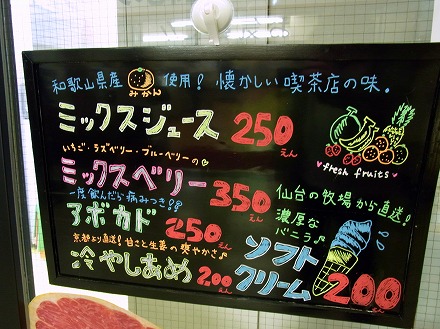 和歌山県産 みかん 使用! 懐かしい喫茶店の味。
ミックスジュース 250えん
fresh fruits
いちご・ラズベリー・ブルーベリーの
ミックスベリー 350えん
一度飲んだら病みつき!?
アボカド 250えん
京都より直送!甘さと生姜の爽やかさ♪
冷やしあめ 200えん
仙台の牧場から直送!
濃厚な
バニラ♪
ソフト
クリーム 200えん